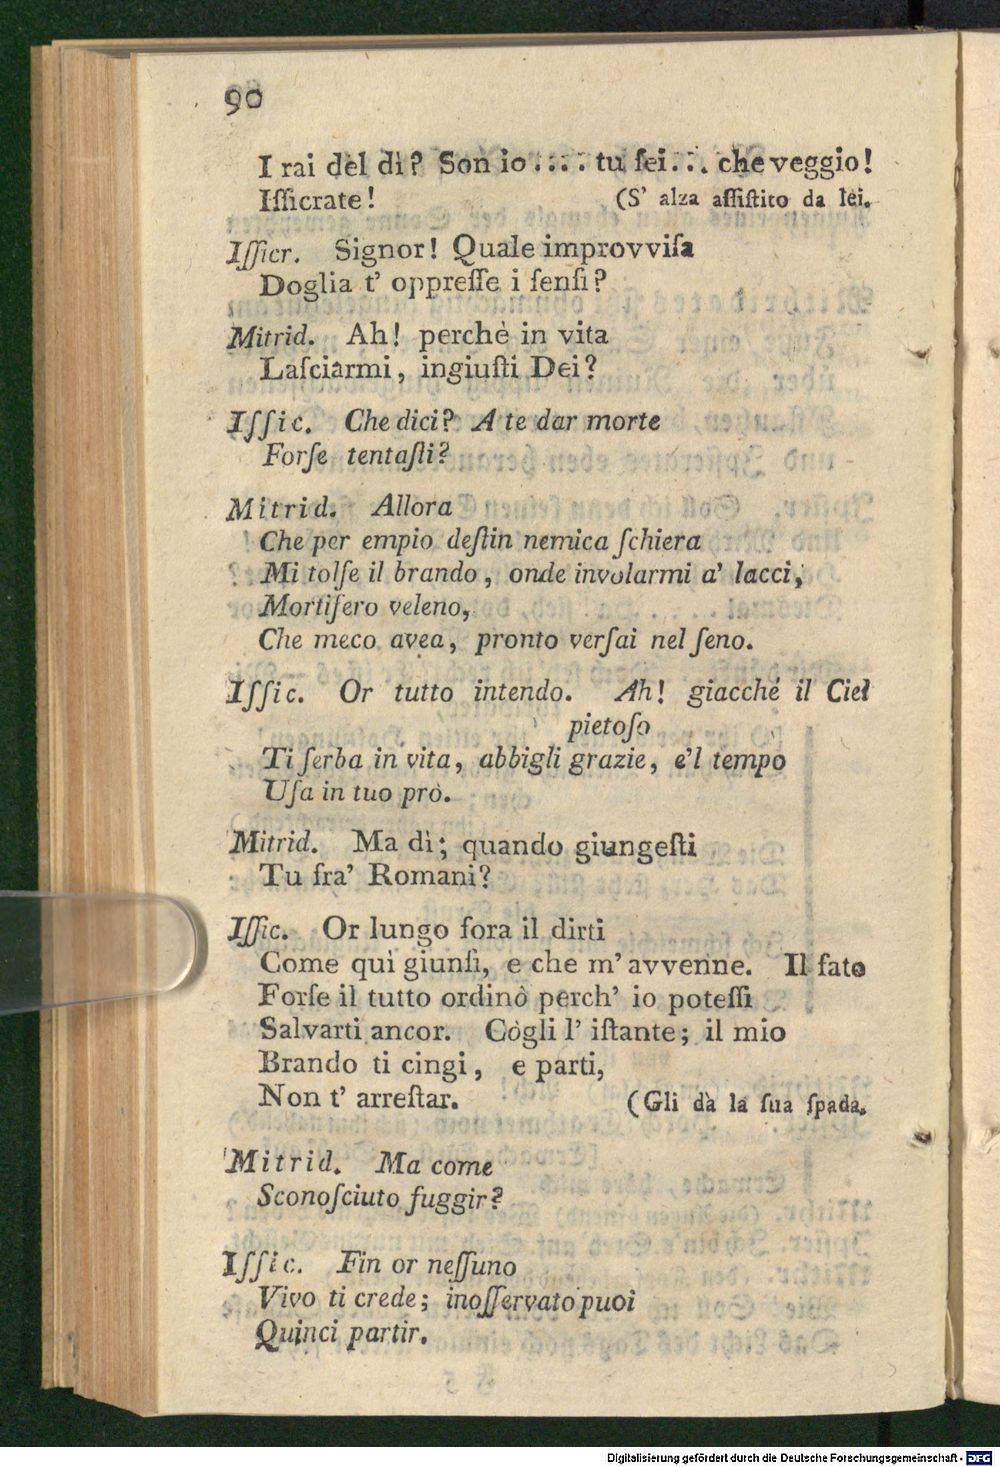 90
I rai del dì? Son io .... tu ſei... che veggio!
Iſſicrate! (S' alza aſſiſtito da lei.
Iſſicr. Signor! Quale improvviſa
Doglia t' oppreſſe i ſenſi?
Mitrid. Ah! perchè in vita
Laſciarmi, ingiuſti Dei?
Iſſic. Che dici? A te dar morte
Forſe tentaſti?
Mitrid. Allora
Che per empio deſtin nemica ſchiera
Mi tolſe il brando, onde involarmi a' lacci,
Mortifero veleno,
Che meco avea, pronto verſai nel ſeno.
Iſſic. Or tutto intendo. Ah! giacché il Ciel
pietoſo
Ti ſerba in vita, abbigli grazie, e'l tempo
Uſa in tuo prò.
Mitrid. Ma dì; quando giungeſti
Tu fra' Romani?
Iſſic. Or lungo fora il dirti
Come qui giunſi, e che m' avvenne. Il fato
Forſe il tutto ordinò perch' io poteſſi
Salvarti ancor. Cògli l' iſtante; il mio
Brando ti cingi, e parti,
Non t' arreſtar. (Gli dà la ſua ſpada.
Mitrid. Ma come
Sconoſciuto fuggir?
Iſſic. Fin or neſſuno
Vivo ti crede; inoſſervato puoi
Quinci partir.
Digitalisierung gefördert durch die Deutsche Forschungsgemeinschaft - DFG